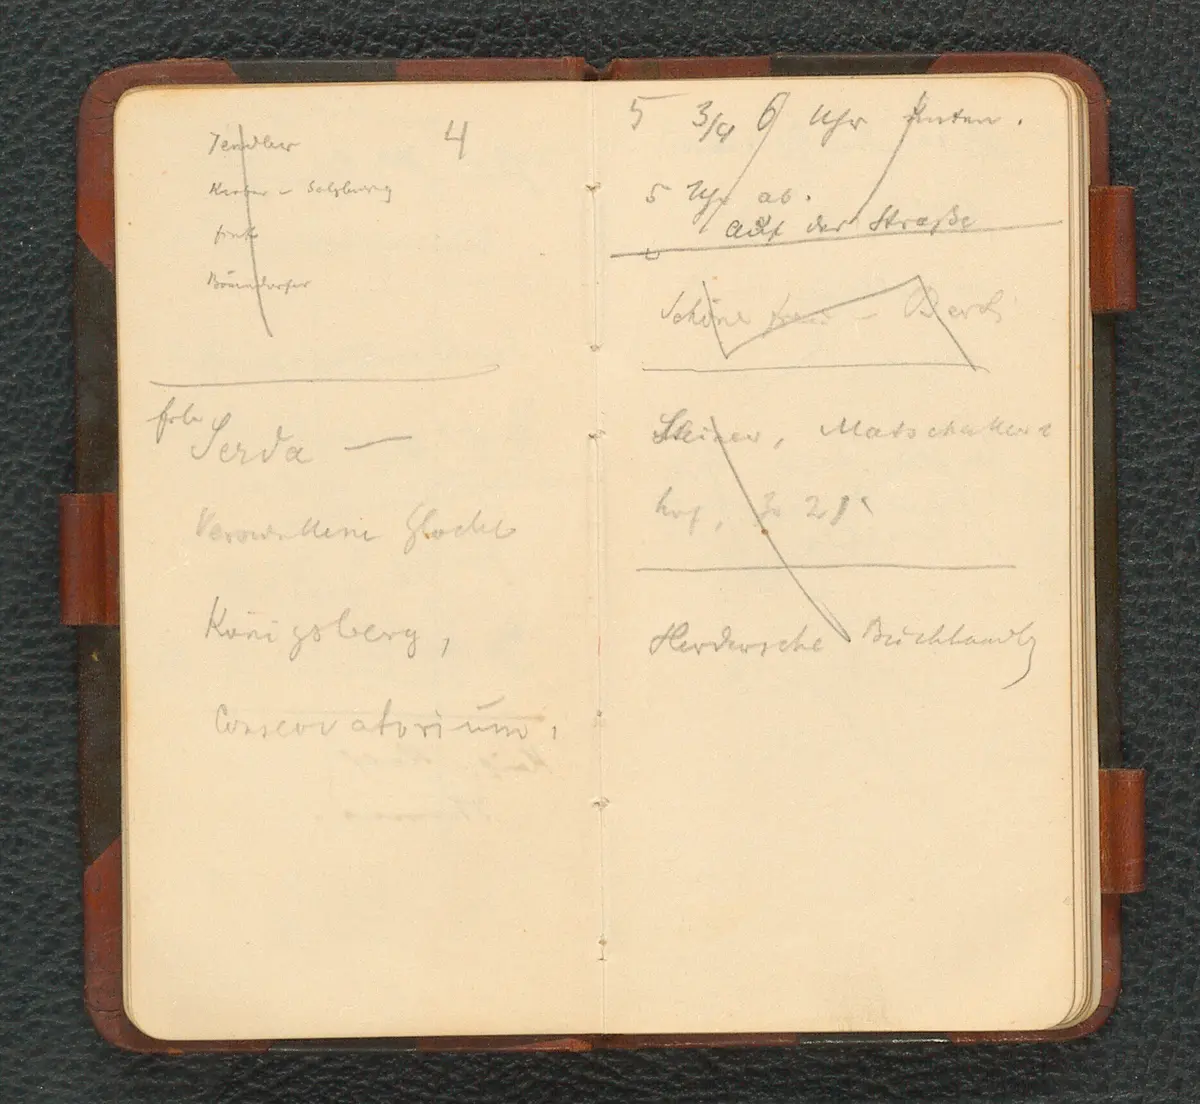 4
Tendler
– Salzburg
Bösendorfer
Serda –
Versunkene Glocke
Königsberg,
Conservatorium,
5 3/4 6 Uhr unten.
5 Uhr ab.
auf der Straße
Schöne Frau –
Steiner, Matschaker
hof, 28
Herdersche Buchhandlg